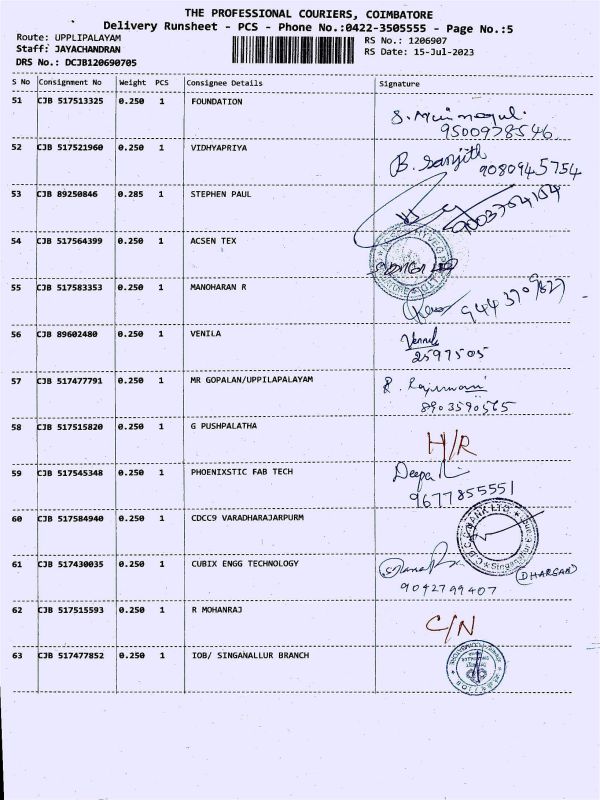 THE PROFESSIONAL COURIERS, COIMBATORE
Delivery Runsheet - PCS - Phone No.:0422-3505555 - Page No.:5
Route: UPPLIPALAYAM
RS No.: 1206907
Staff: JAYACHANDRAN
RS Date: 15-Jul-2023
DRS No.: DCJB120690705
S No Consignment No Weight PCS Consignee Details Signature
51 CJB 517513325 0.250 1 FOUNDATION
9500978546
52 CJB 517521960 0.250 1 VIDHYAPRIYA
B. Sanjith 9080945754
53 CJB 89250846 0.285 1 STEPHEN PAUL
54 CJB 517564399 0.250 1 ACSEN TEX
55 CJB 517583353 0.250 1 MANOHARAN R
56 CJB 89602480 0.250 1 VENILA
2597505
57 CJB 517477791 0.250 1 MR GOPALAN/UPPILAPALAYAM
8903590565
58 CJB 517515820 0.250 1 G PUSHPALATHA
H/R
59 CJB 517545348 0.250 1 PHOENIXSTIC FAB TECH
Deepa
9677855551
60 CJB 517584940 0.250 1 CDCC9 VARADHARAJARPURM
61 CJB 517430035 0.250 1 CUBIX ENGG TECHNOLOGY
9042799407
62 CJB 517515593 0.250 1 R MOHANRAJ
C/N
63 CJB 517477852 0.250 1 IOB/ SINGANALLUR BRANCH